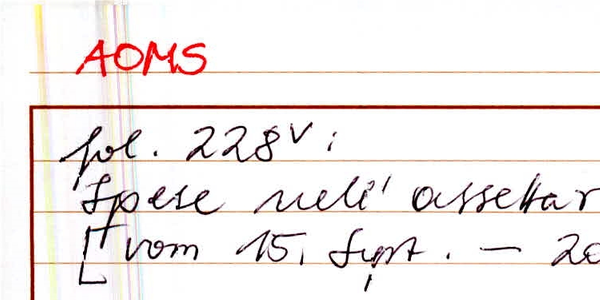 AOMS
fol. 228v:
Spese nell' assettar
[vom 15. Sept. - 20